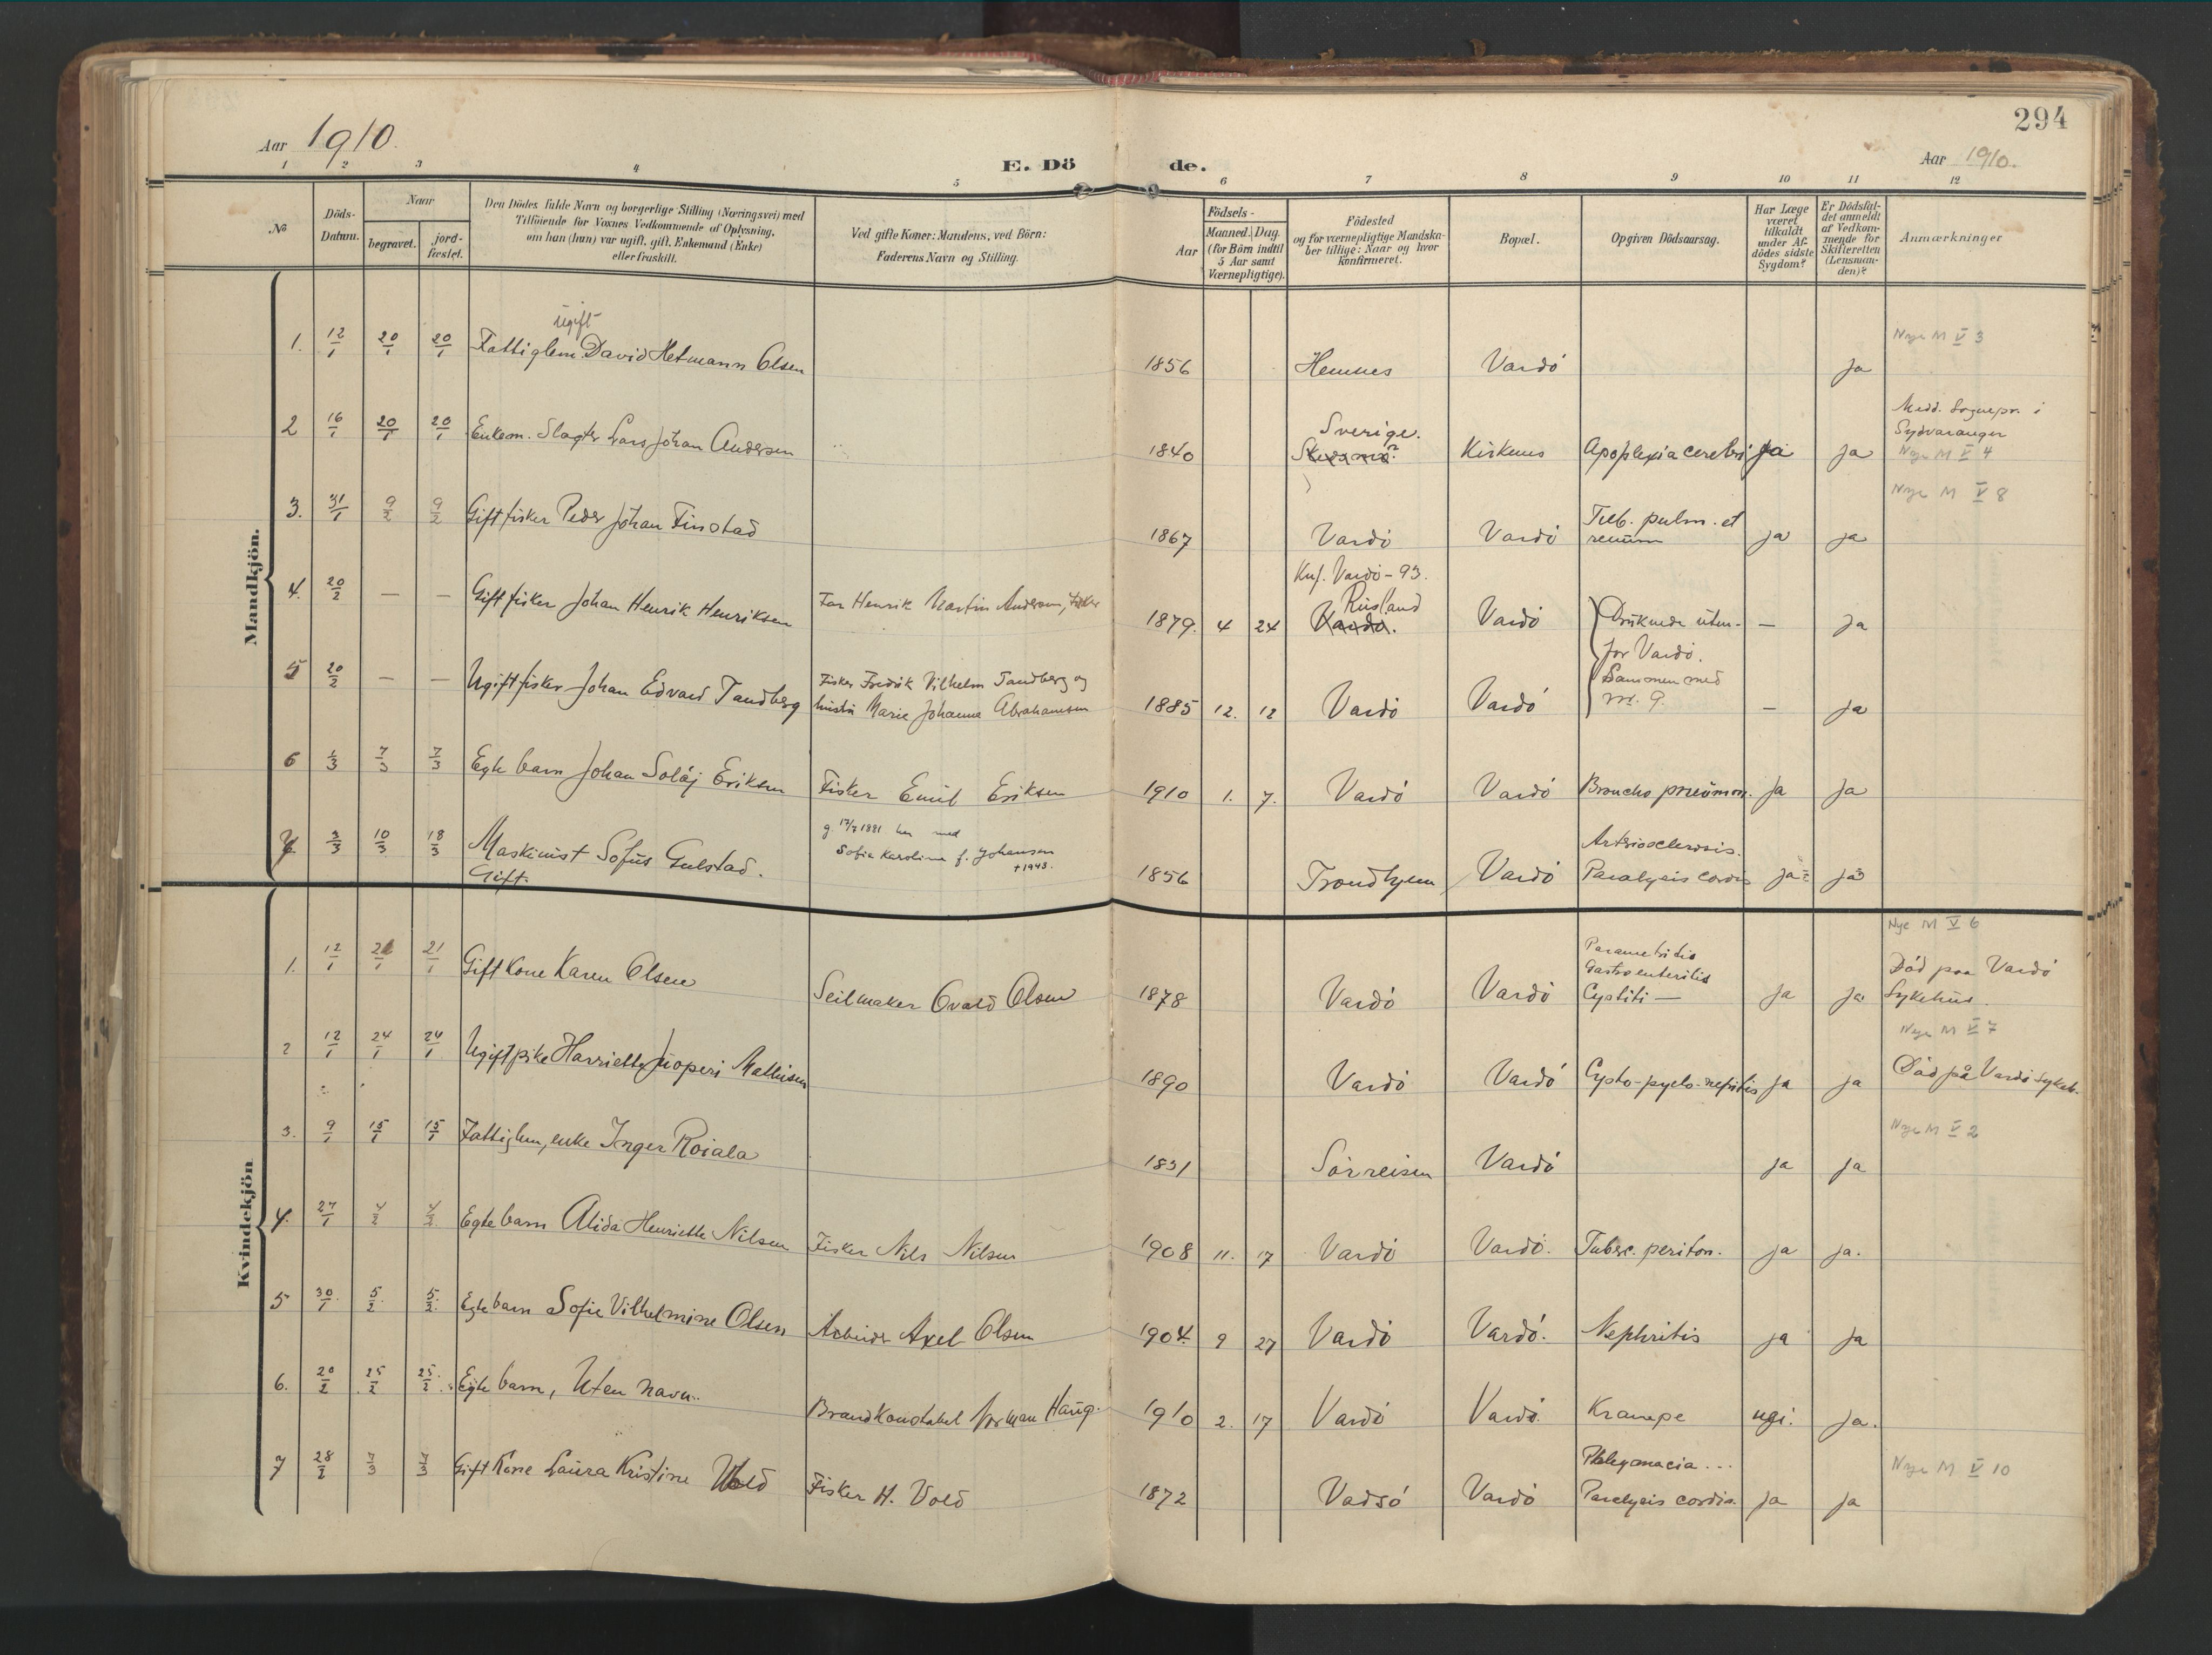 294
Aar 1910.
E. Dö de.
Aar 1910.
1 2 3 4 5 6 7 8 9 10 11 12
No
Döds-
Datum.
Naar
begravet.
jord-
fæstet.
Den Dödes fulde Navn og borgerlige Stilling (Næringsvei) med
Tilföiende for Voxnes Vedkommende af Oplysning,
om han (hun) var ugift, gift, Enkemand (Enke)
eller fraskilt.
Ved gifte Koner: Mandens, ved Börn:
Faderens Navn og Stilling.
Aar
Födsels-
Maaned. Dag.
(for Börn indtil
5 Aar samt
Værnepligtige).
Födested
og for værnepligtige Mandska-
ber tillige: Naar og hvor
konfirmeret.
Bopæl.
Opgiven Dödsaarsag.
Har Læge
været
tilkaldt
under Af-
dödes sidste
Sygdom?
Er Dödsfal-
det anmeldt
af Vedkom-
mende for
Skifteretten
(Lensman-
den)?
Anmærkninger
Mandkjön.
ugift
1. 12/1 20/1 20/1 Fattiglem David Hetmann Olsen 1856 Hemnes Vardö ja Nye M V 3
2 16/1 20/1 20/1 Enkem. Slagter Lars Johan Andersen 1840 Sverige. Kirkenes Apoplexia cerebri ja ja
Medd. Sognepr. i
Sydvaranger
Nye M V 4
3. 31/1 9/2 9/2 Gift fisker Peder Johan Finstad 1867 Vardö Vardö Tub. pulm. et
renum ja ja Nye M V 8
4. 20/2 — — Gift fisker Johan Henrik Henriksen Far Henrik Martin Andersen, fisker 1879. 4 24
Knf. Vardö - 93.
Rusland
Vardö. Vardö Druknede uten-
for Vardö.
Sammen med
nr. 9. — ja
5 20/2 — — Ugift fisker Johan Edvard Tandberg
Fisker Fredrik Vilhelm Tandberg og
hustru Marie Johanne Abrahamsen 1885 12. 12 Vardö Vardö — ja
6 1/3 7/3 7/3 Egte barn Johan Soløj Eriksen Fisker Emil Eriksen 1910 1. 7. Vardö Vardö Broncho pneumon. ja ja
7 3/3 10/3 18/3 Maskinist Sofus Gulstad.
Gift.
g. 17/7 1881 her med
Sofie Karoline f. Johansen
+1943.
1856 Trondhjem Vardö
Arteriosclerosis.
Paralysis cordis ja ja
Kvindekjön
1. 12/1 21/1 21/1 Gift Kone Karen Olsen Seilmaker Ovald Olsen 1878 Vardö Vardö
Parametritis
Gastroenteritis
Cystiti— ja ja
Nye M V 6
Död paa Vardö
Sykehus.
2 12/1 24/1 24/1 Ugift pike Harriette Juoperi Mathisen 1890 Vardö Vardö Cysto-pyelo-nefritis ja ja
Nye M V 7
Död på Vardö Sykeh.
3. 9/1 15/1 15/1 Fattiglem, enke Inger Roiala 1831 Sörreisen Vardö ja ja Nye M V 2
4. 27/1 4/2 4/2 Egte barn Alida Henriette Nilsen Fisker Nils Nilsen 1908 11. 17 Vardö Vardö. Tuberc. periton. ja ja.
5 30/1 5/2 5/2 Egte barn Sofie Vilhelmine Olsen Arbeider Axel Olsen 1904. 9 27 Vardö Vardö. Nephritis ja ja
6. 20/2 25/2 25/2 Egte barn, Uten navn. Brandkonstabel Norman Haug. 1910 2. 17 Vardö Vardö. Krampe nei. ja.
7 28/2 7/3 7/3 Gift Kone Laura Kristine Vold Fisker H. Vold 1872 Vadsö Vardö
Phlegmacia...
Paralysis cordis. ja ja Nye M V 10